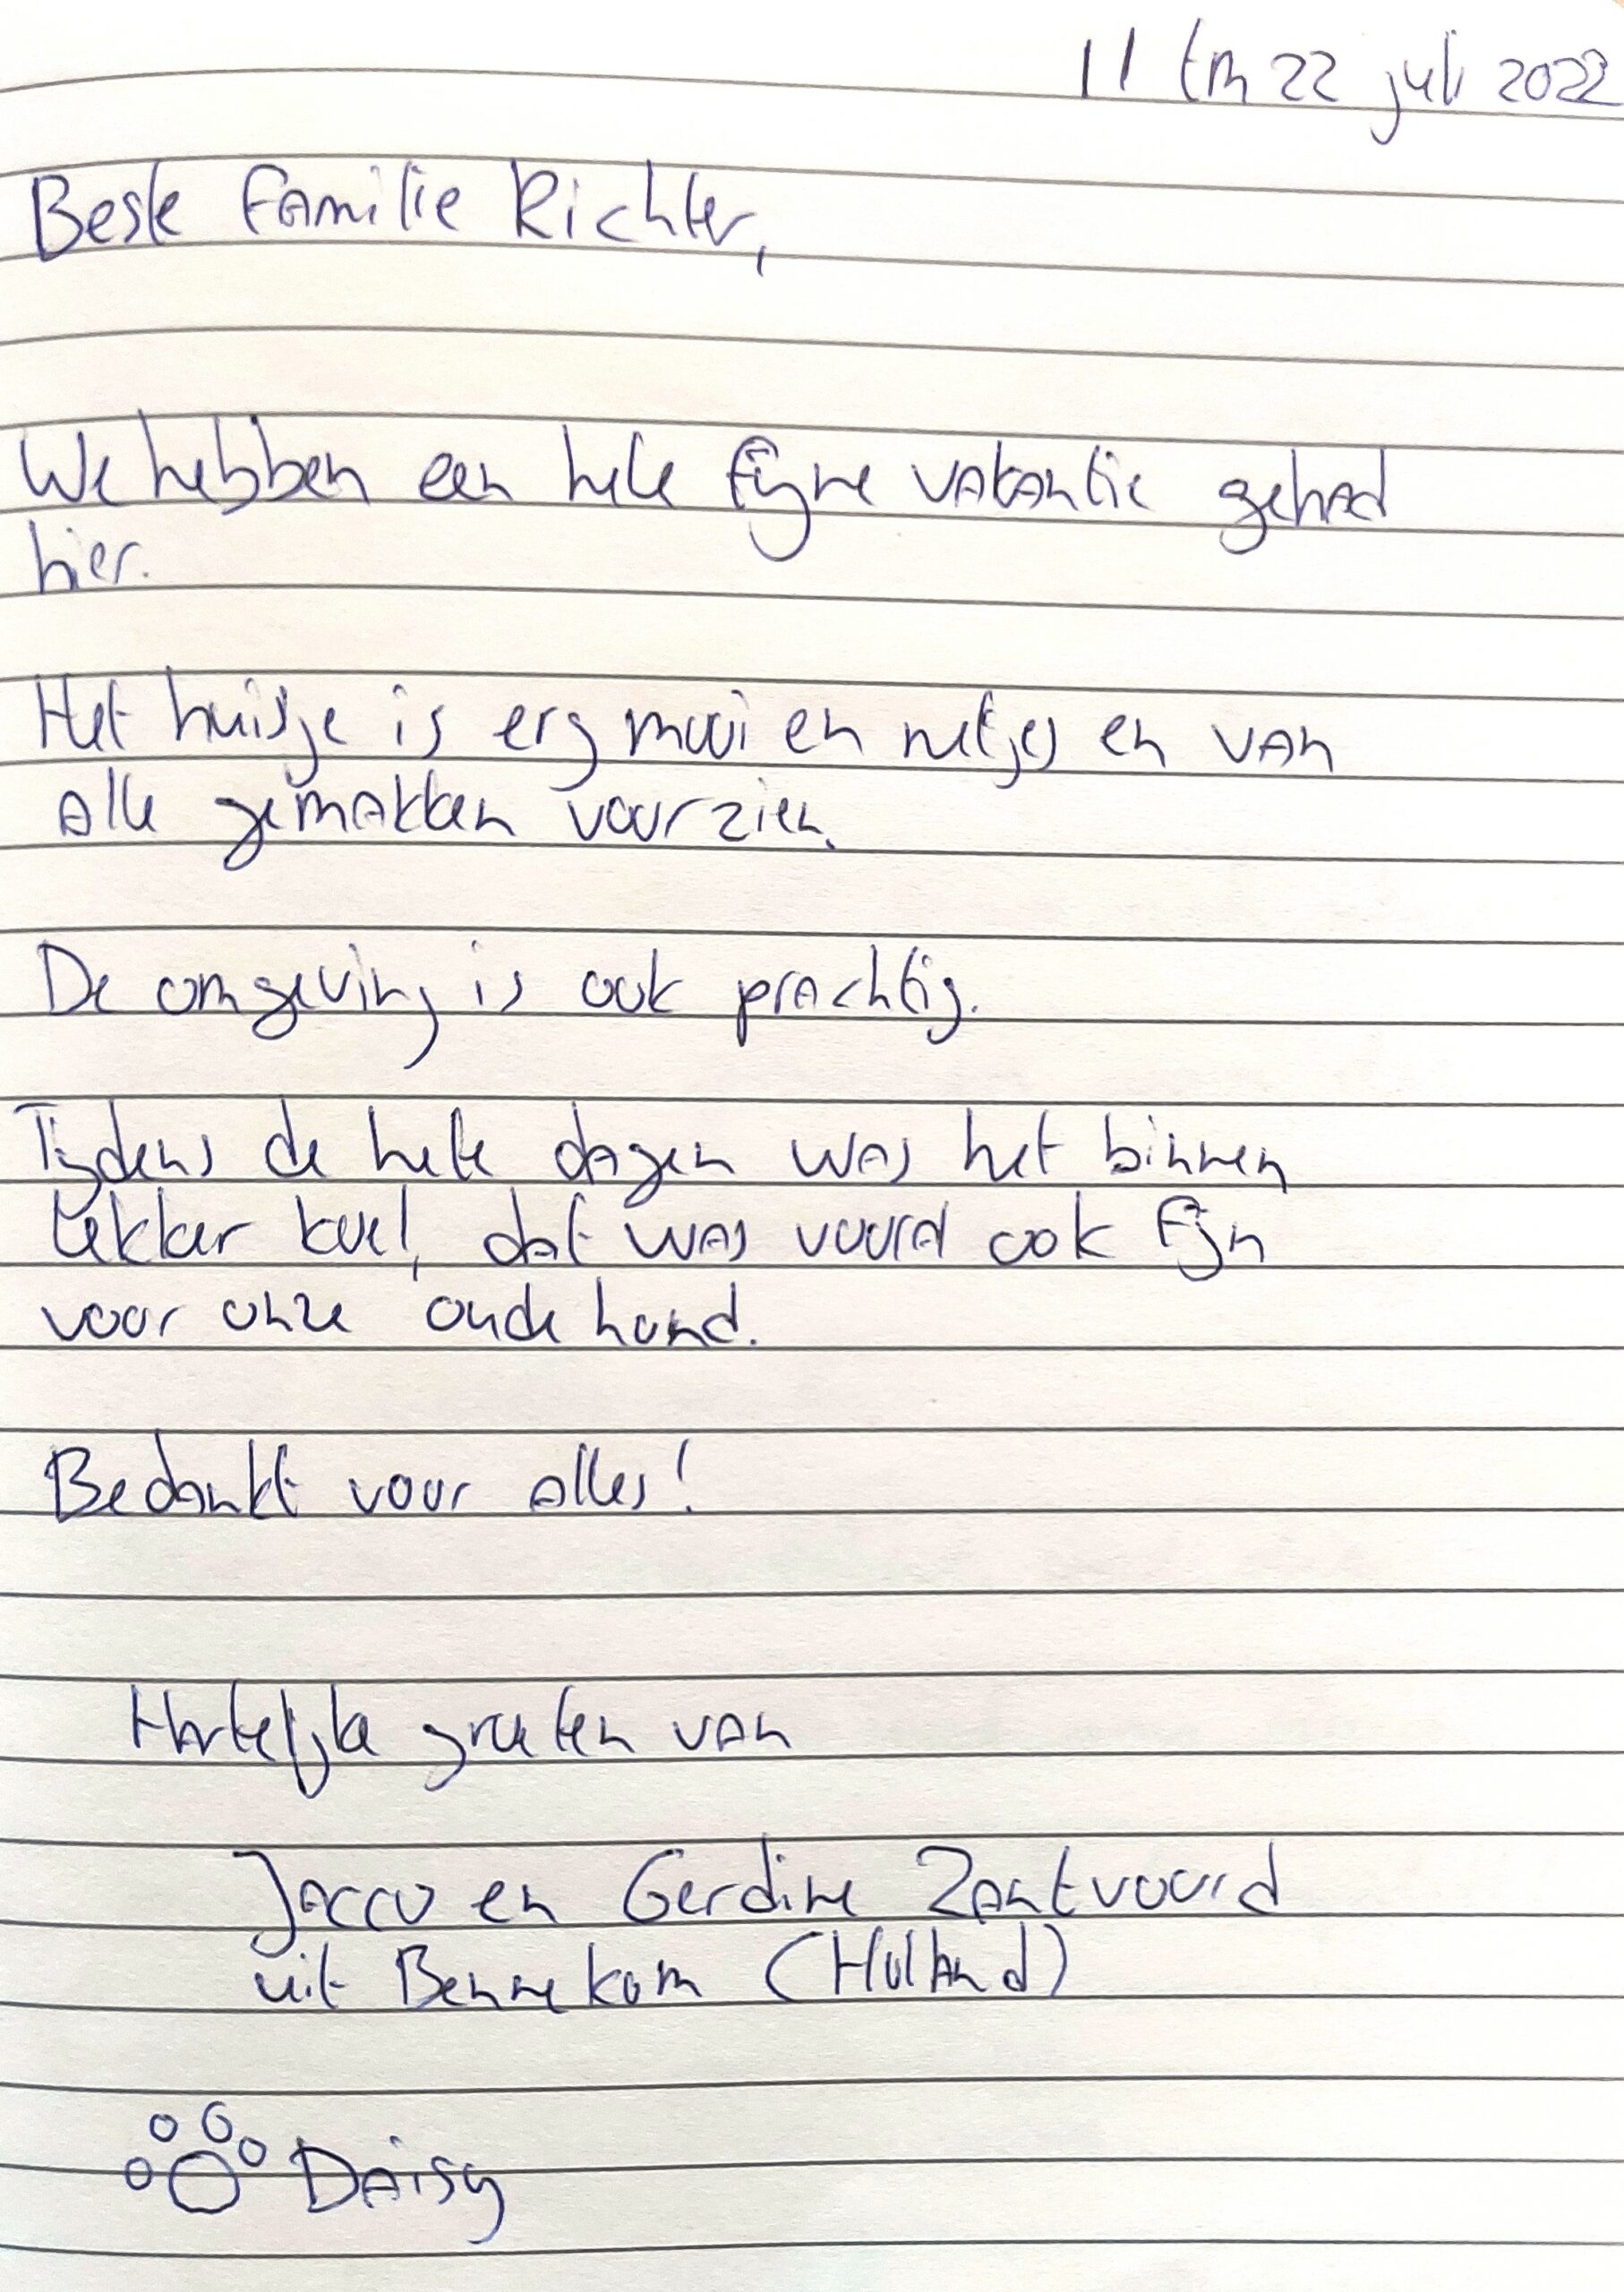 11 tm 22 juli 2022
Beste Familie Richter,
We hebben een hele fijne vakantie gehad
hier.
Het huisje is erg mooi en netjes en van
alle gemakken voorzien.
De omgeving is ook prachtig.
Tijdens de hete dagen was het binnen
lekker koel, dat was vooral ook fijn
voor onze oude hond.
Bedankt voor alles!
Hartelijke groeten van
Jacco en Gerdine Zantvoord
uit Bennekom (Holland)
Daisy